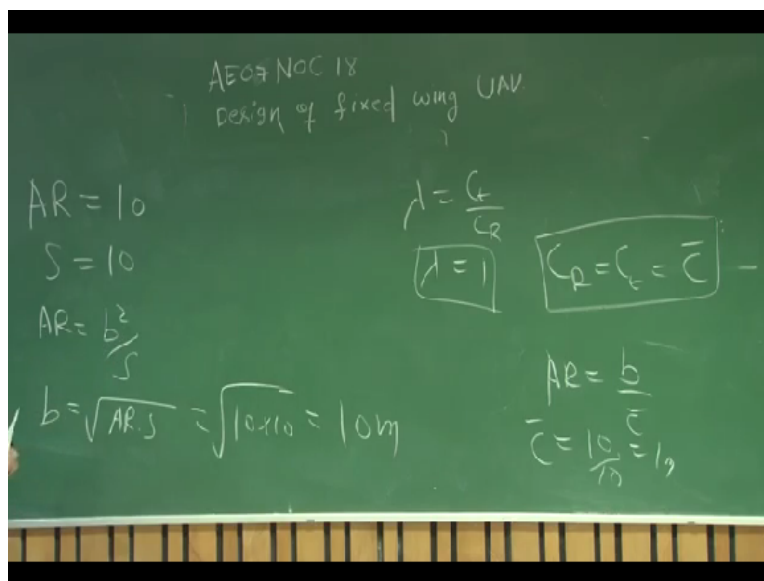 AE07 NOC 18
Design of fixed wing UAV.
AR = 10
S = 10
AR = b²/S
b = √AR.S = √10×10 = 10m
λ = Ct/CR
λ = 1
CR = Ct = C̄
AR = b/c̄
c̄ = 10/10 = 1m